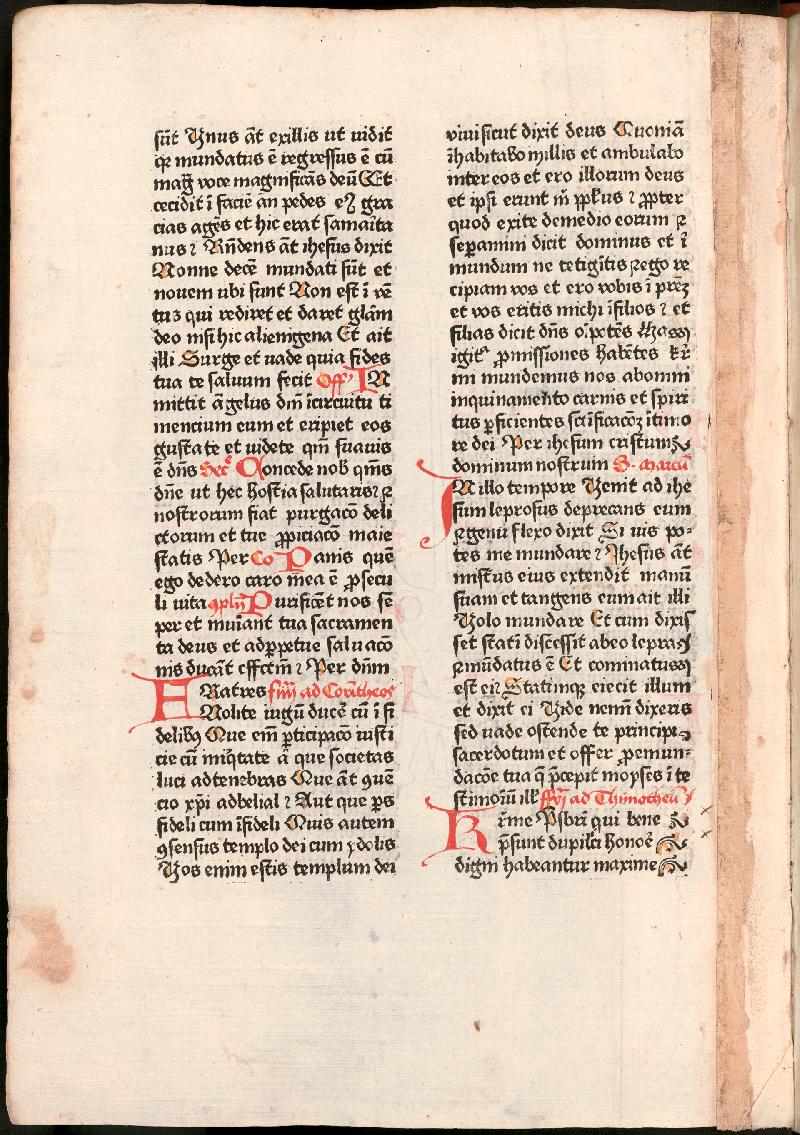 sūt Vnus āt exillis ut uidit
qꝛ mundatus ē regressus ē cū
mag̃ voce magnificās deū Et
cecidit ī faciē an pedes eꝰ gra
cias agēs et hic erat samaīta
nus ꝛ Rn̄dens āt ihesus dixit
Nonne decē mundati sūt et
nouem ubi sunt Non est ī vē
tus qui rediret et daret glām
deo nisi hic alienigena Et ait
illi Surge et uade quia fides
tua te saluum fecit Off' IN
mittit āgelus dm̄ īcircuitu ti
mencium eum et eripiet eos
gustate et uidete qm̄ suauis
ē dn̄s Secͬ Concede nob̄ qm̄s
dn̄e ut hec hostia salutaris ꝛ
nostrorum fiat purgacō deli
ctorum et tue ꝓpiciacō maie
statis Per Co Panis quē
ego dedero caro mea ē ꝓsecu
li uita ꝯpln̄ Purificēt nos sē
per et muīant tua sacramen
ta deus et adꝑpetue saluacō
nis ducāt effctm̄ ꝛ Per dn̄m
FRatres ad Corītheos
Nolite iugū ducē cū ī fi
delibꝰ Que em̄ ꝑticipacō iusti
cie cū miq̄tate ā que societas
luci adtenebras Que āt ꝯuē
cio xp̄i adbelial ꝛ Aut que ꝑs
fideli cum īfideli Quis autem
ꝯsensus templo dei cum ydolis
Vos enim estis templum dei
viui sicut dixit deus Quoniā
īhabitabo ī illis et ambulabo
inter eos et ero illorum deus
et ipsi erunt m̄ ppl̄us ꝛ ꝓpter
quod exite demedio eorum ꝛ
seꝑamini dicit dominus et ī
mundum ne tetigītis ꝛego re
cipiam vos et ero vobis ī prēꝫ
et vos eritis michi ī filios ꝛ et
filias dicit dn̄s oīpotēs Hasꝯ
igitͬ ꝓmissiones habētes kr̄
mi mundemus nos abomni
inquinamento carnis et spiri
tus ꝑficientes scīficacōꝫ ītimo
re dei Per ihesum cristum
dominum nostrum S. Marcū
IN illo tempore Venit ad ihe
sum leprosus deprecans eum
ꝛgenu flexo dixit Si uis po-
tes me mundare ꝛ Ihesus āt
mistus eius extendit manū
suam et tangens eum ait illi
Volo mundare Et cum dixis
set statī discessit abeo lepraꝯ
ꝛmūdatus ē Et cominatusꝯ
est ei ꝛ Statimqꝫ eiecit illum
et dixit ei Vide nem̄ dixeris
sed uade ostende te principi
sacerdotum et offer ꝓemun-
dacōe tua q̄ p̄cepit moyses ī te
stimoīū ill̄ ad Thimotheū
Kr̄me Psbr̄i qui bene
p̄sunt dupilci honoē
digni habeantur maxime